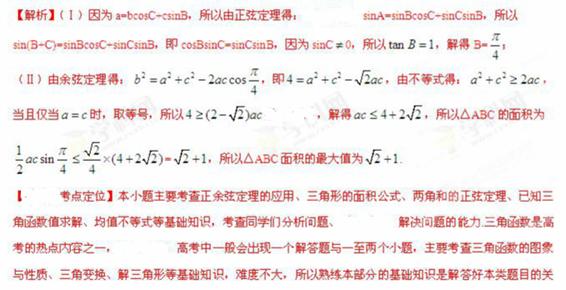 【解析】(Ⅰ)因为a=bcosC+csinB，所以由正弦定理得： sinA=sinBcosC+sinCsinB，所以
sin(B+C)=sinBcosC+sinCsinB，即 cosBsinC=sinCsinB，因为 sinC≠0，所以 tan B=1，解得 B=π/4；
(Ⅱ)由余弦定理得：b²=a²+c²-2ac cos π/4，即4=a²+c²-√2ac，由不等式得：a²+c²≥2ac，
当且仅当 a=c 时，取等号，所以4≥(2-√2)ac ，解得 ac≤4+2√2，所以△ABC 的面积为
1/2 ac sin π/4 ≤ √2/4 ×(4+2√2)=√2+1，所以△ABC 面积的最大值为√2+1.
【 考点定位】本小题主要考查正余弦定理的应用、三角形的面积公式、两角和的正弦定理、已知三
角函数值求解、均值不等式等基础知识，考查同学们分析问题、 解决问题的能力.三角函数是高
考的热点内容之一， 高考中一般会出现一个解答题与一至两个小题，主要考查三角函数的图象
与性质、三角变换、解三角形等基础知识，难度不大，所以熟练本部分的基础知识是解答好本类题目的关